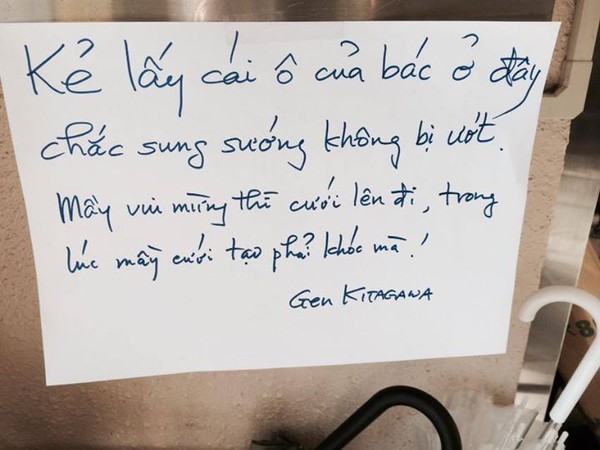 Kẻ lấy cái ô của bác ở đây
chắc sung sướng không bị ướt.
Mầy vui mừng thì cười lên đi, trong
lúc mầy cười tạo phải khóc mà!
Gen KITAGAWA